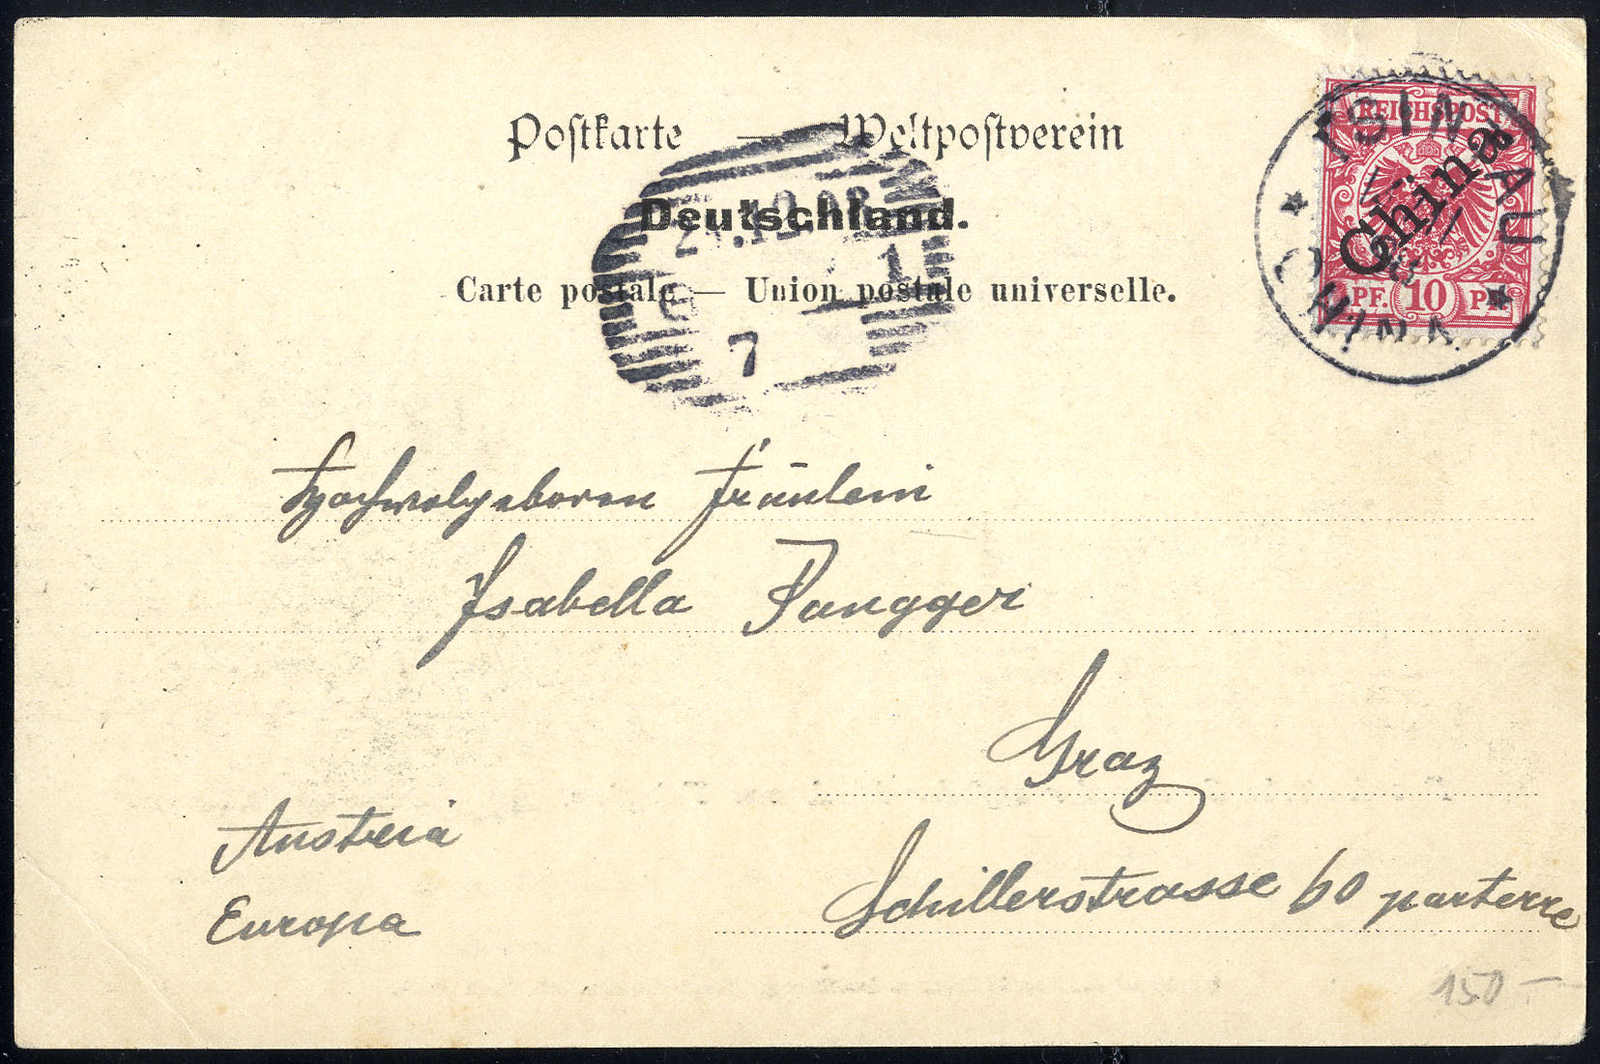 Postkarte — Weltpostverein
Deutschland.
Carte postale — Union postale universelle.
REICHSPOST
China
PF. 10 PF.
TSINTAU
CHINA
1
7
Hochwolgeboren Fräulein
Isabella Pangger
Graz
Schillerstrasse 60 parterre
Austria
Europa
150 —